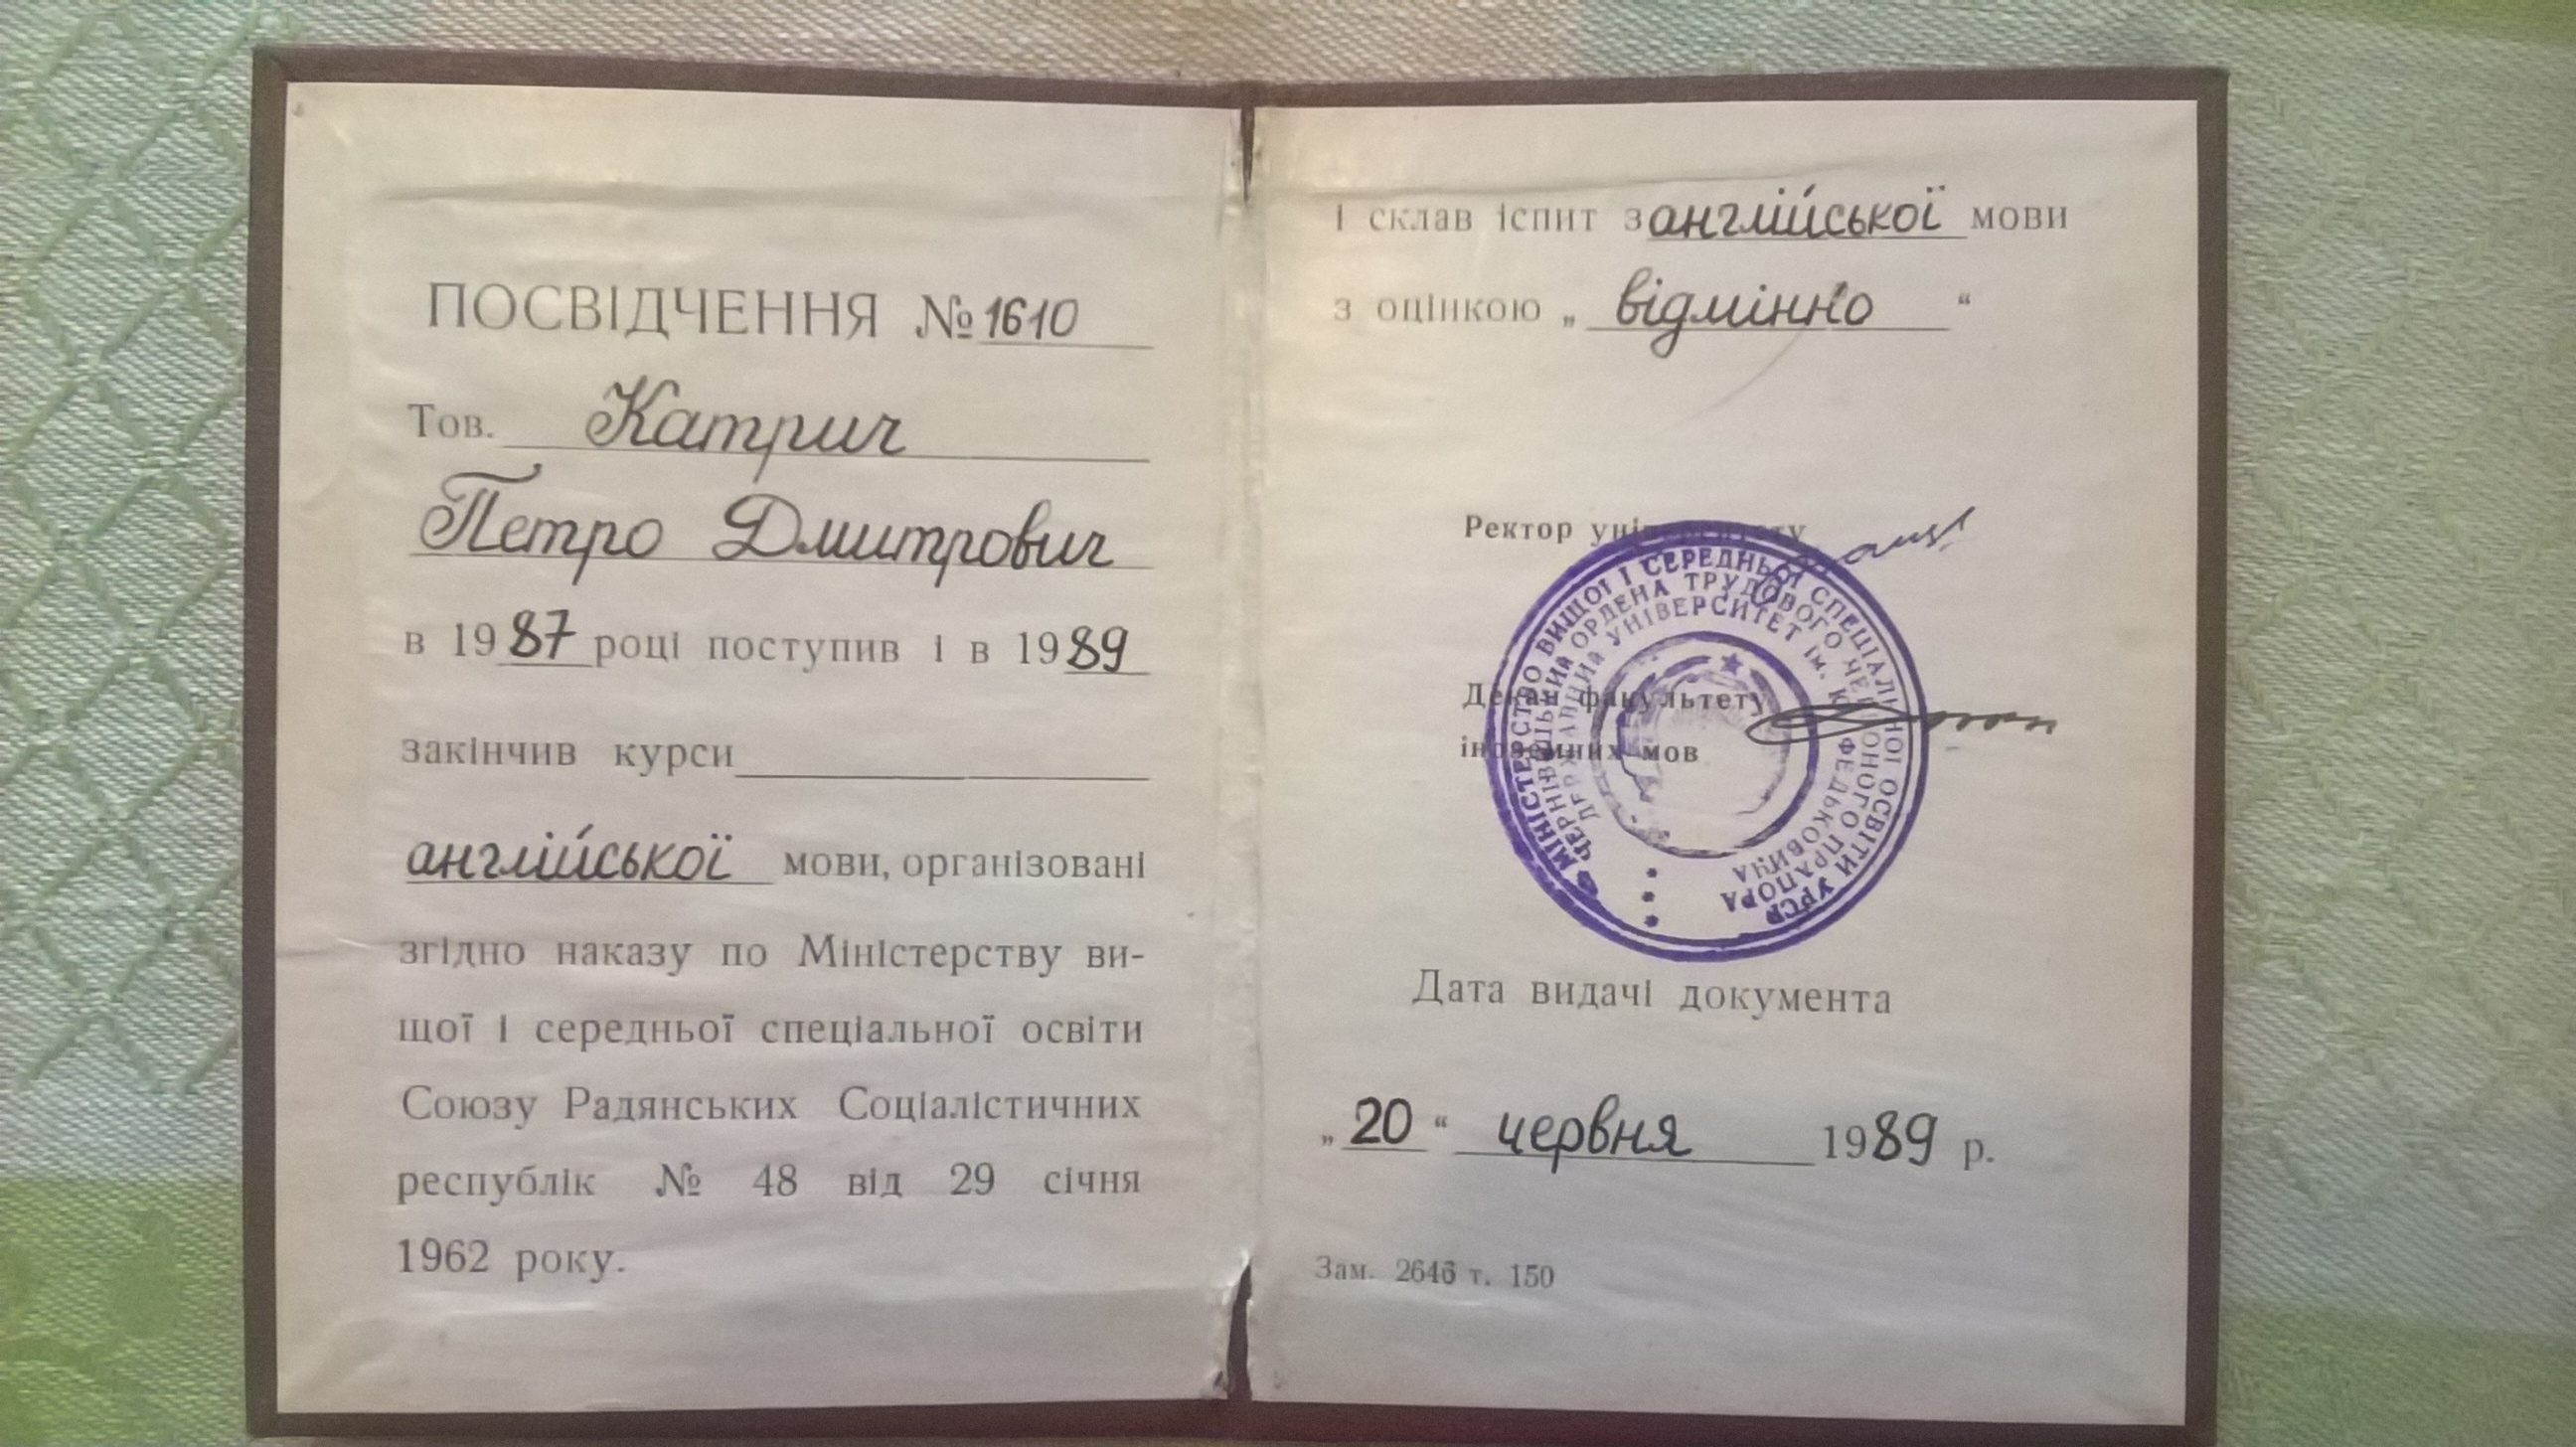 ПОСВІДЧЕННЯ № 1610
Тов. Катрич
Петро Дмитрович
в 1987 році поступив і в 1989
закінчив курси
англійської мови, організовані
згідно наказу по Міністерству ви-
щої і середньої спеціальної освіти
Союзу Радянських Соціалістичних
республік № 48 від 29 січня
1962 року.
і склав іспит з англійської мови
з оцінкою „ відмінно “
Ректор університету
Декан факультету
іноземних мов
МІНІСТЕРСТВО ВИЩОЇ І СЕРЕДНЬОЇ СПЕЦІАЛЬНОЇ ОСВІТИ УРСР
ЧЕРНІВЕЦЬКИЙ ОРДЕНА ТРУДОВОГО ЧЕРВОНОГО ПРАПОРА
ДЕРЖАВНИЙ УНІВЕРСИТЕТ ім. Ю. ФЕДЬКОВИЧА
Дата видачі документа
„ 20 “ червня 1989 р.
Зам. 2646 т. 150